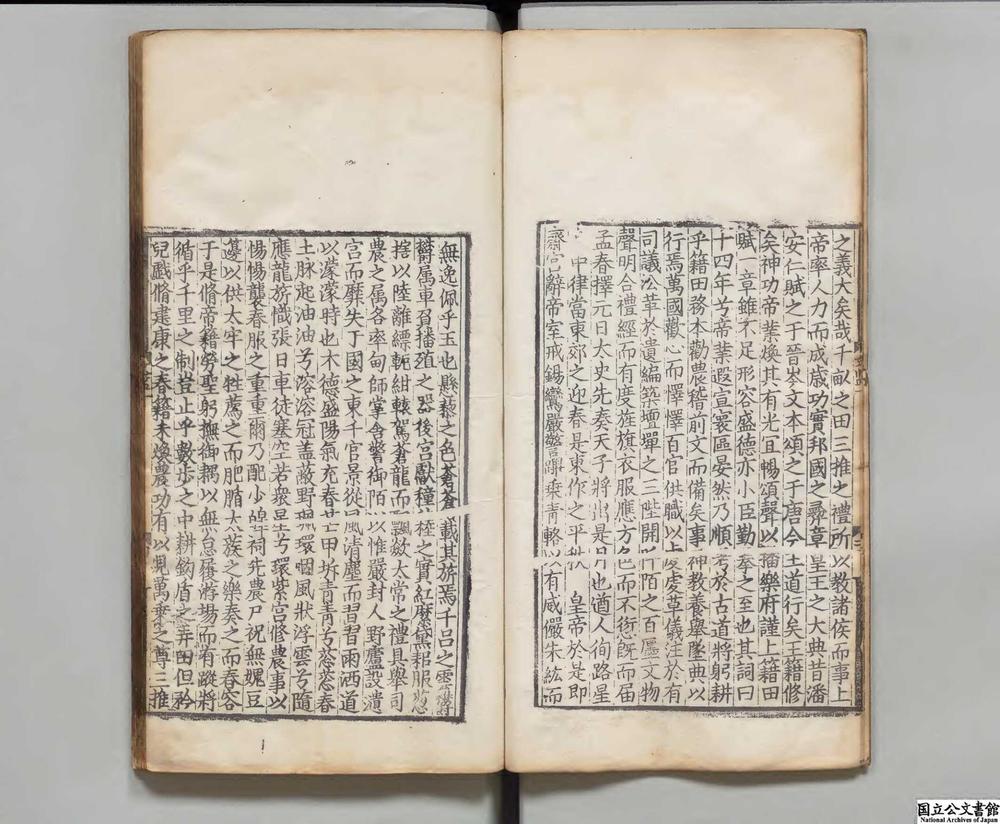 之義大矣哉千畝之田三推之禮所以教諸侯而事上
帝率人力而成歲功實邦國之彞章皇王之大典昔潘
安仁賦之于晉岑文本頌之于唐今王道行矣王籍修
矣神功帝業煥其有光宜暢頌聲以播樂府謹上籍田
賦一章雖不足形容盛德亦小臣勤奉之至也其詞曰
十四年兮帝業遐宣寰區晏然乃順考於古道將躬耕
乎籍田務本勸農稽前文而備矣事神教養舉墜典以
行焉萬國歡心而懌懌百官供職以虔虔草儀注於有
司議㳂革於遺編築壇墠之三陛開阡陌之百廛文物
聲明合禮經而有度旌旗衣服應方色而不愆既而届
孟春擇元日太史先奏天子將出是月也遒人徇路星
中律當東郊之迎春是東作之平秩 皇帝於是即
齋宮辭帝室戒錫鸞嚴警蹕乗青輅以有威儼朱紘而
無逸佩乎玉也縣藜之色蒼蒼載其旂焉千吕之雲欝
欝属車播殖之器後宮獻穜稑之實紅縻黛耜服葱
犗以陸離縹軛紺轅駕蒼龍而飄歘太常之禮具舉司
農之属各率甸師掌舍警御陌以惟嚴封人野廬設壝
宮而靡失于國之東千官景從風清塵而習習雨洒道
以濛濛時也木德盛陽氣充春芒甲坼青青兮葱葱春
土脉起油油兮溶溶冠盖蔽野珮環咽風狀浮雲兮隨
應龍旂幟張日車徒塞空若衆星兮環紫宮修農事以
惕惕襲春服之重重爾乃配少皥祠先農尸祝無媿豆
籩以供太牢之牲薦之而肥腯大蔟之樂奏之而春容
于是脩帝籍勞聖躬撫御耦以無怠履游場而有蹤將
循乎千里之制豈止乎數步之中耕鈎盾之弄田但矜
兒戲脩建康之春籍未煥農功有以見萬乗之尊三推
国立公文書館
National Archives of Japan